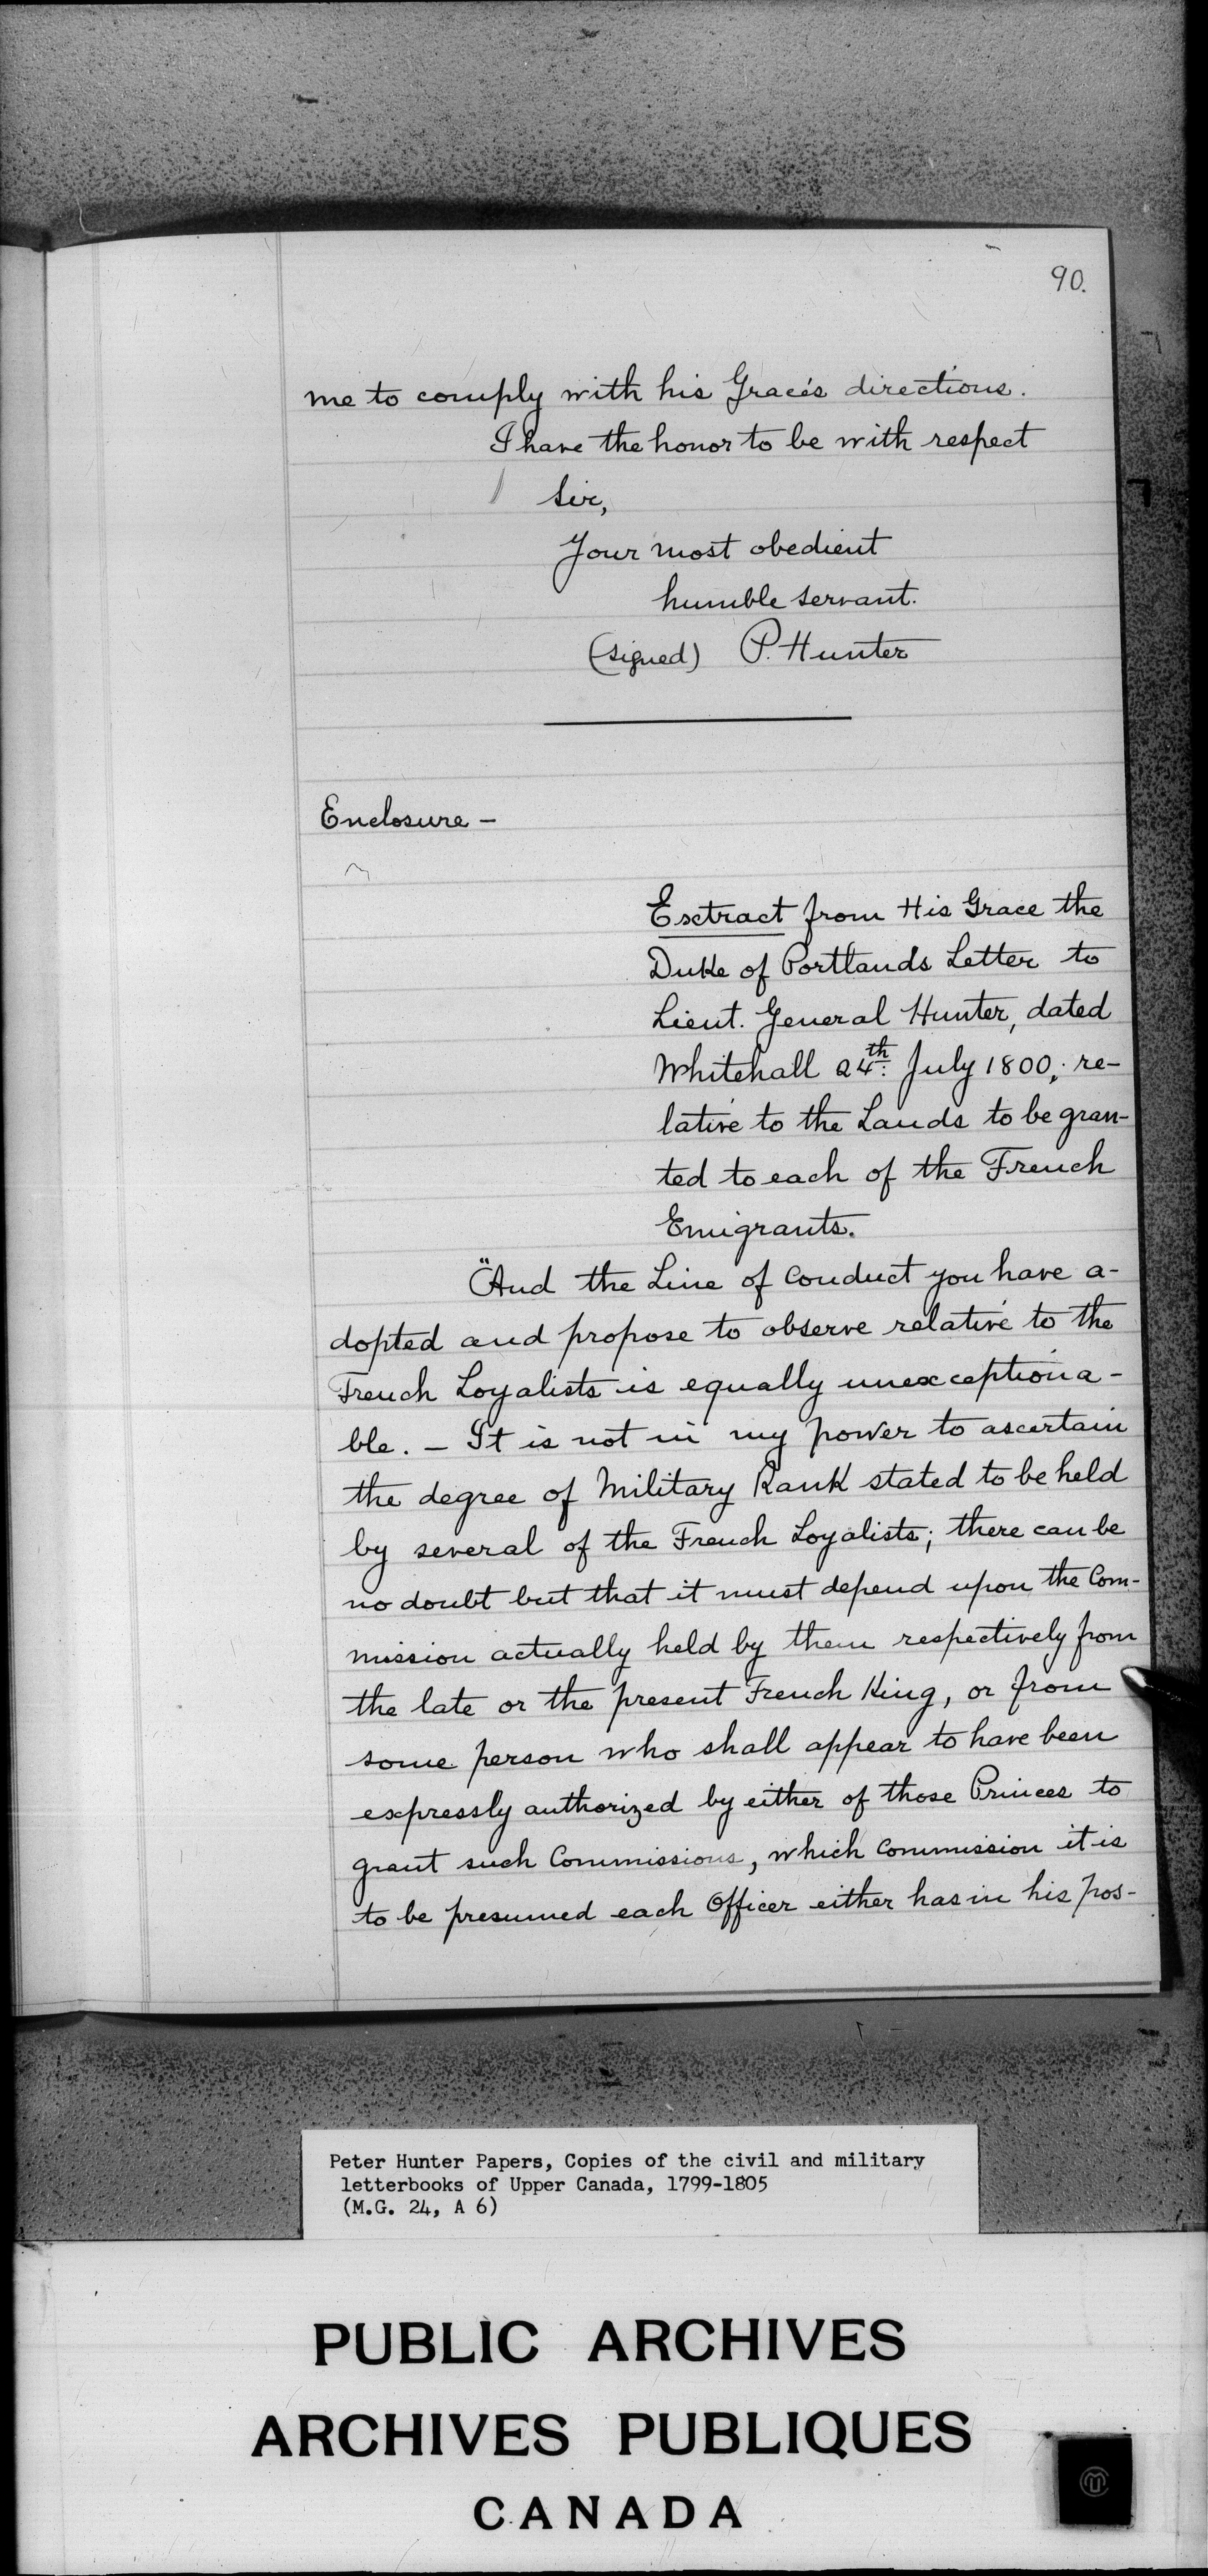 90.
me to comply with his Grace's directions.
I have the honor to be with respect
Sir,
Your most obedient
humble servant.
(signed) P. Hunter
Enclosure -
Extract from His Grace the
Duke of Portlands Letter to
Lieut. General Hunter, dated
Whitehall 24th: July 1800, re-
lative to the Lands to be gran-
ted to each of the French
Emigrants.
"And the Line of Conduct you have a-
dopted and propose to observe relative to the
French Loyalists is equally unexceptiona-
ble. - It is not in my power to ascertain
the degree of Military Rank stated to be held
by several of the French Loyalists; there can be
no doubt but that it must depend upon the Com-
mission actually held by them respectively from
the late or the present French King, or from
some person who shall appear to have been
expressly authorized by either of those Princes to
grant such Commissions, which Commission it is
to be presumed each Officer either has in his pos-
Peter Hunter Papers, Copies of the civil and military
letterbooks of Upper Canada, 1799-1805
(M.G. 24, A 6)
PUBLIC ARCHIVES
ARCHIVES PUBLIQUES
CANADA